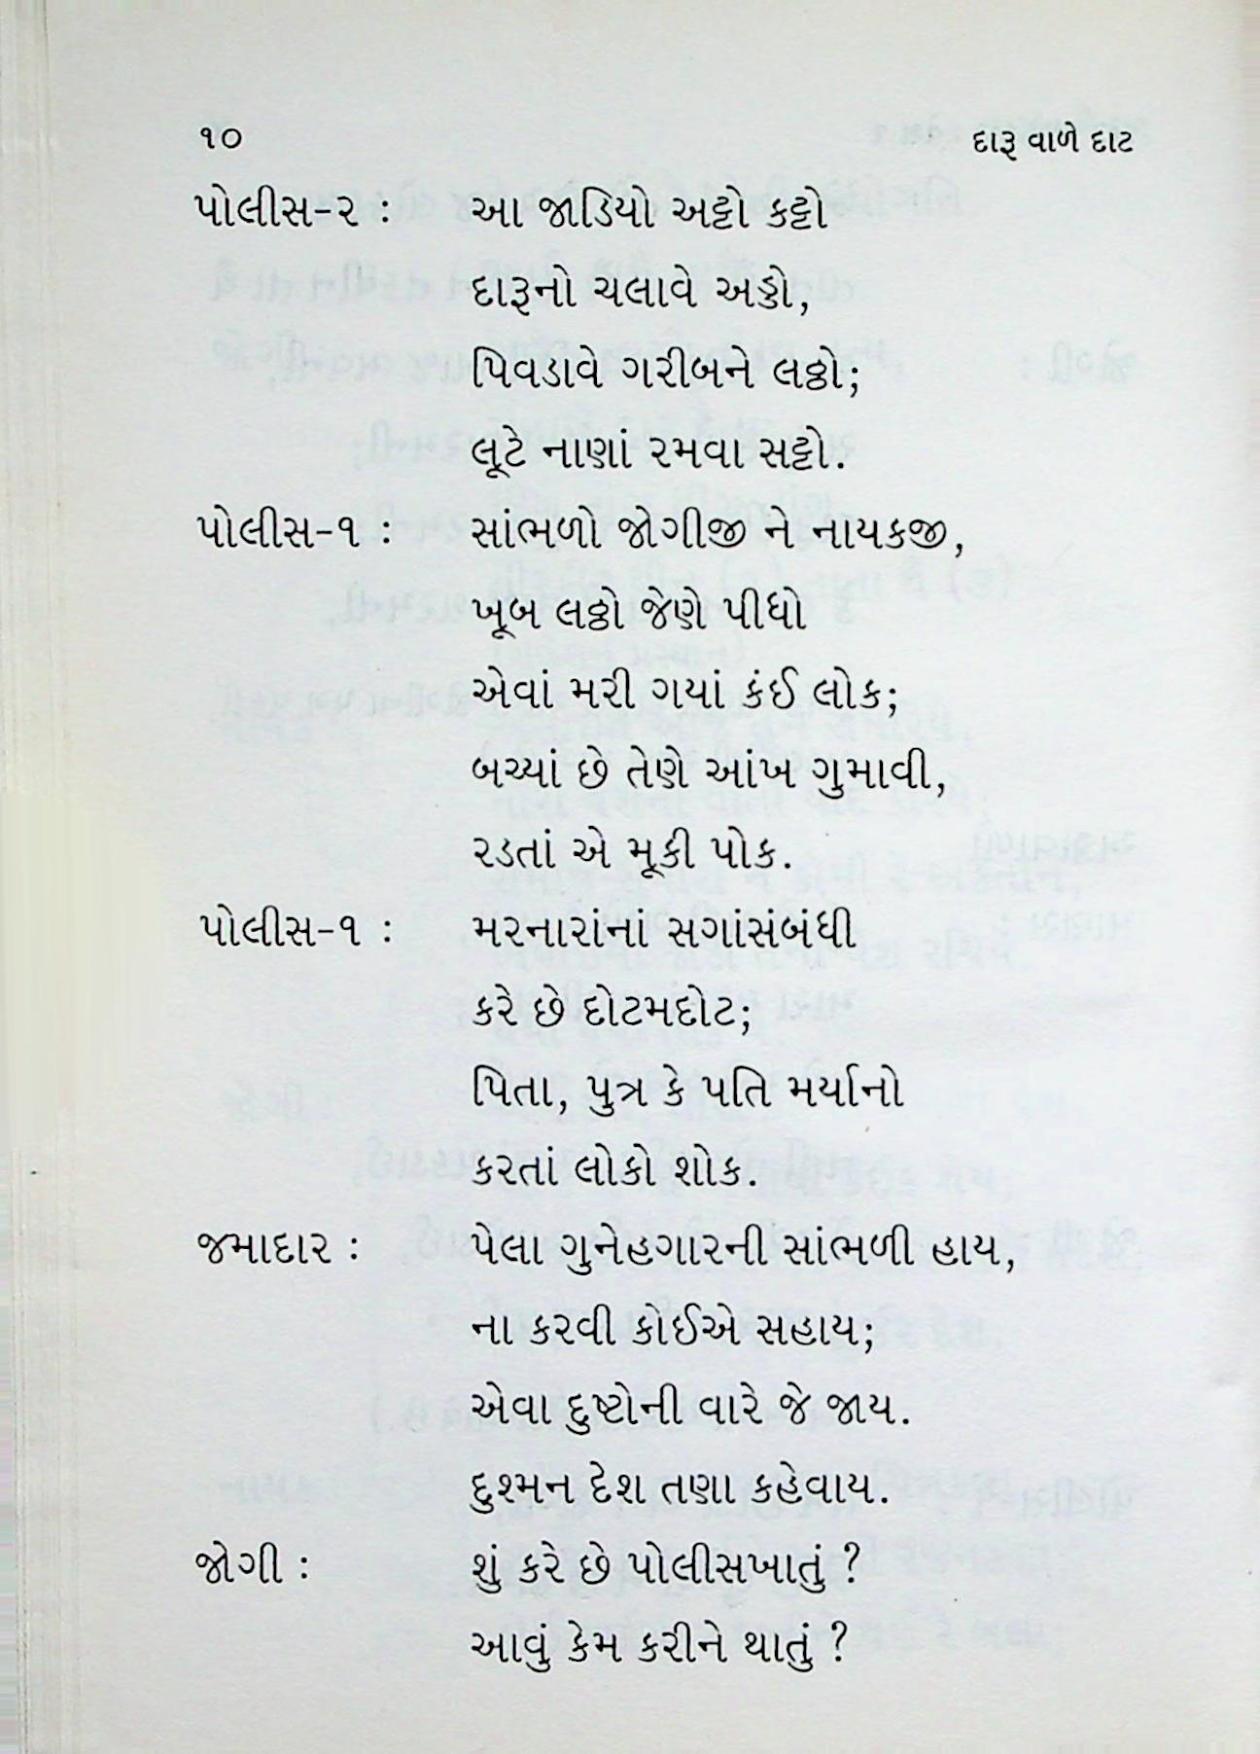 ૧૦ દારૂ વાળે દાટ
પોલીસ-૨ : આ જાડિયો અટ્ટો કટ્ટો
દારૂનો ચલાવે અડ્ડો,
પિવડાવે ગરીબને લઠ્ઠો;
લૂટે નાણાં રમવા સટ્ટો.
પોલીસ-૧ : સાંભળો જોગીજી ને નાયકજી,
ખૂબ લઠ્ઠો જેણે પીધો
એવાં મરી ગયાં કંઈ લોક;
બચ્યાં છે તેણે આંખ ગુમાવી,
રડતાં એ મૂકી પોક.
પોલીસ-૧ : મરનારાંનાં સગાંસંબંધી
કરે છે દોટમદોટ;
પિતા, પુત્ર કે પતિ મર્યાનો
કરતાં લોકો શોક.
જમાદાર : પેલા ગુનેહગારની સાંભળી હાય,
ના કરવી કોઈએ સહાય;
એવા દુષ્ટોની વારે જે જાય.
દુશ્મન દેશ તણા કહેવાય.
જોગી : શું કરે છે પોલીસખાતું ?
આવું કેમ કરીને થાતું ?